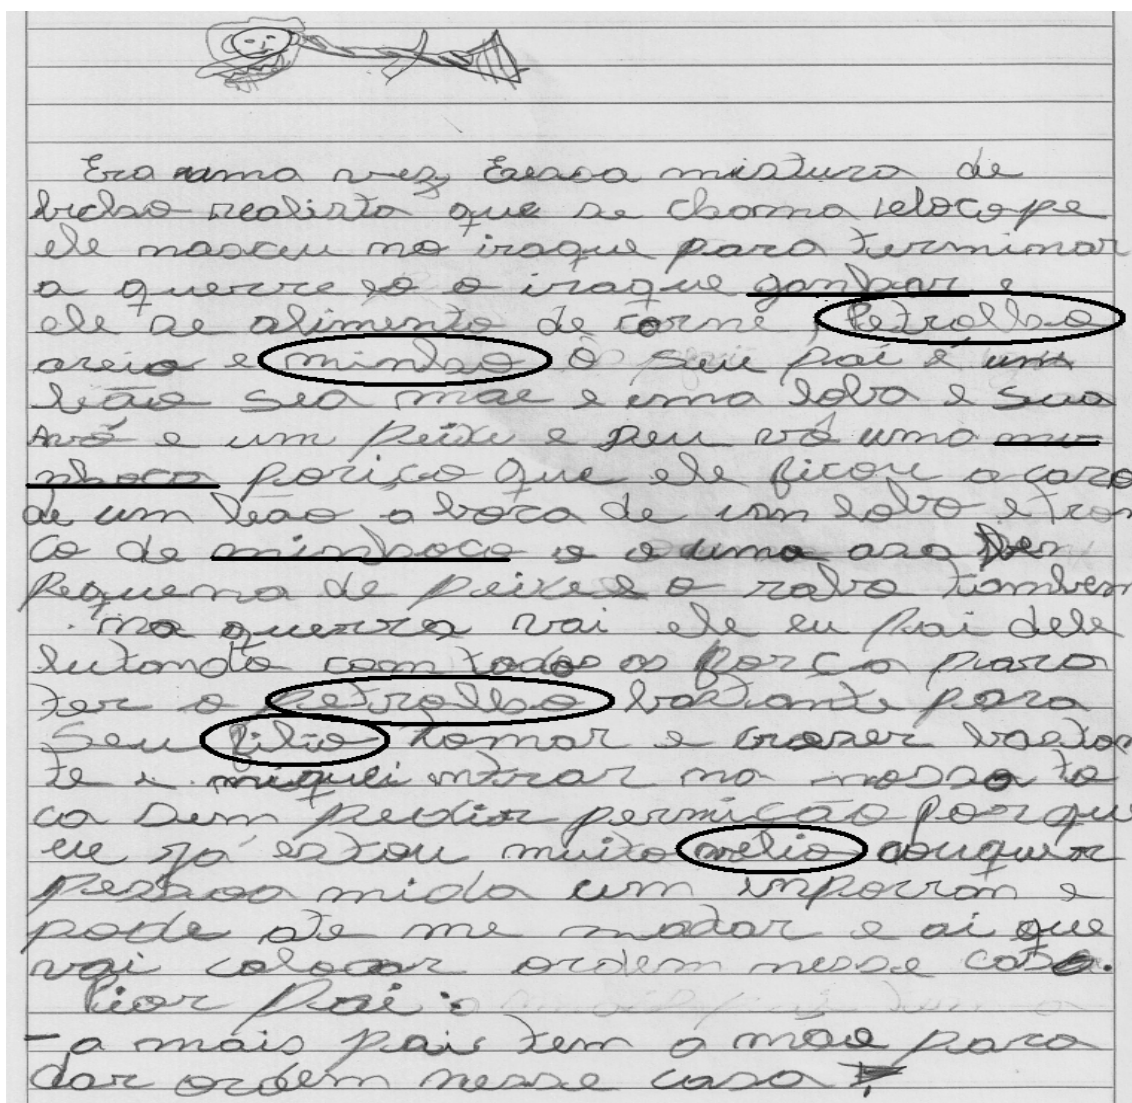 Era uma vez Essa mistura de
bicho realista que se chama velocope
ele nasceu no iraque para terminar
a querre so o iraque ganhar e
ele se alimento de carne, Petrolho
areia e minho o seu pai é um
leão sua mae e uma loba e sua
Avó e um peixe e seu vô uma mi
nhoca poriço que ele ficou a cara
de um leão a boca de um lobo e tron
co de minhoca e e uma asa bem
Pequena de peixe e o rabo tambem
na querra vai ele eu pai dele
lutando com todas as força para
ter o Petrolho bastante para
Seu filio tomar e trazer bastan
te e ninquei intrar na nossa to
ca sem pedir permição porque
eu já estou muito velio couquer
pessoa mida um imporrão e
pode ate me matar e ai que
vai colocar ordem nesse casa.
pai:
- a mais pai tem a mae para
dar ordem nesse casa